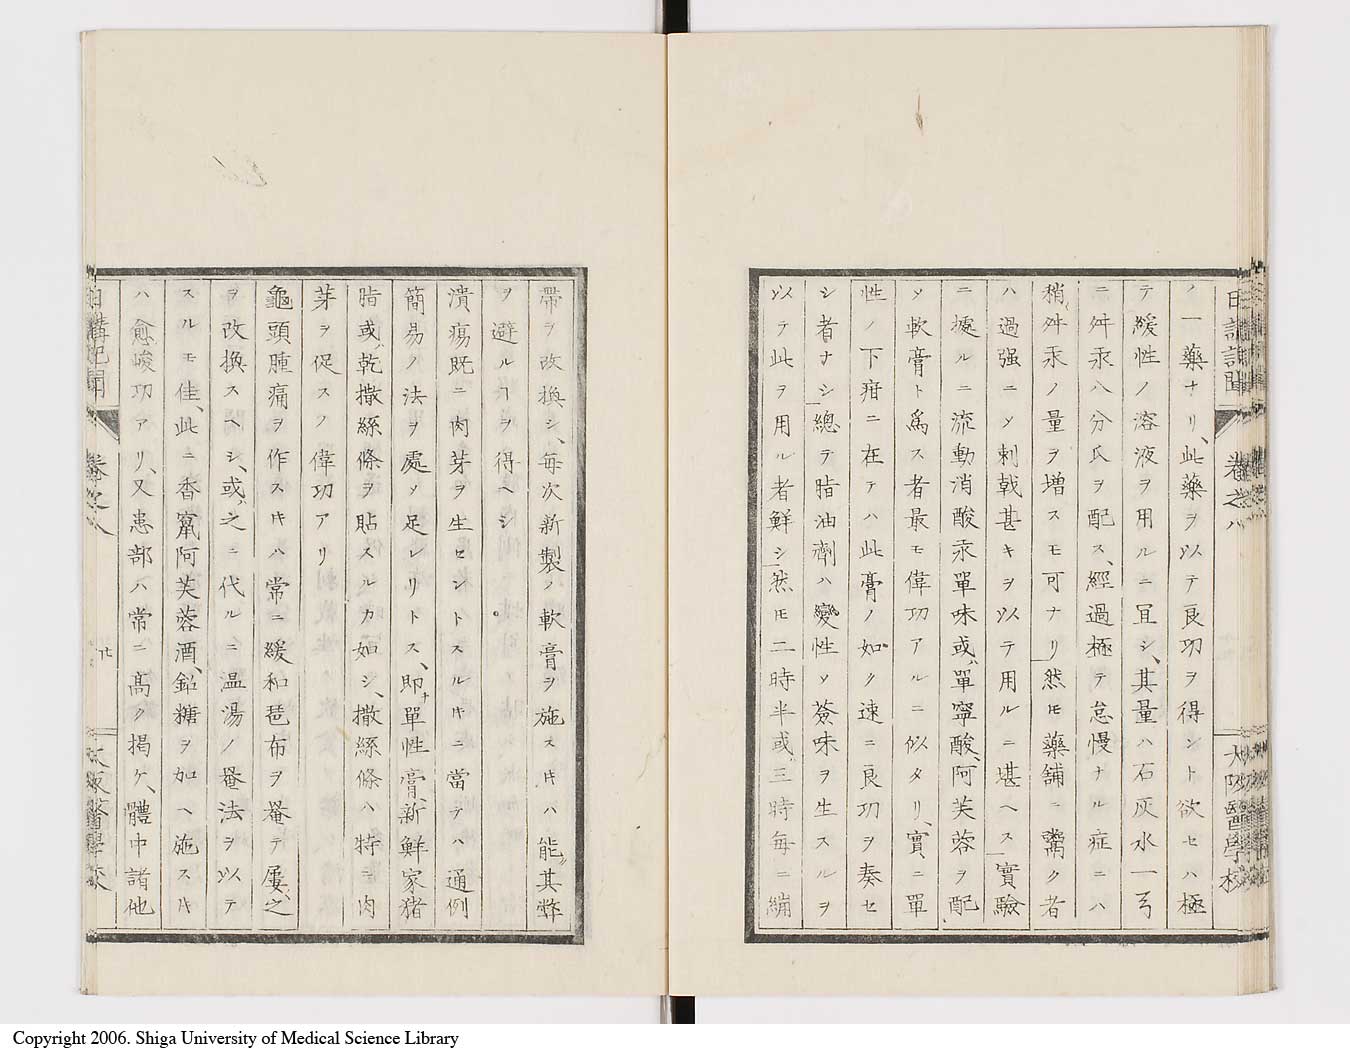 日講記聞 卷之八 大阪醫學校
ノ一藥ナリ、此藥ヲ以テ良功ヲ得ント欲セハ極
テ緩性ノ溶液ヲ用ルニ冝シ、其量ハ石灰水一弓
ニ舛汞八分瓜ヲ配ス、經過極テ怠慢ナル症ニハ
稍舛汞ノ量ヲ增スモ可ナリ然𪜈藥舖ニ鬻ク者
ハ過强ニノ刺戟甚キヲ以テ用ルニ堪ヘス實驗
ニ據ルニ流動消酸汞單味或單寧酸、阿芙蓉ヲ配
ソ軟膏ト爲ス者最モ偉功アルニ似タリ、實ニ單
性ノ下疳ニ在テハ此膏ノ如ク速ニ良功ヲ奏セ
シ者ナシ總テ脂油劑ハ變性ソ莶味ヲ生スルヲ
以テ此ヲ用ル者鮮シ然𪜈二時半或三時每ニ繃
帶ヲ改換シ、每次新製ノ軟膏ヲ施スキハ能其弊
ヲ避ルヿヲ得ヘシ。
潰瘍既ニ肉芽ヲ生セントスルキニ當テハ通例
簡易ノ法ヲ處ソ足レリトス、即チ單性膏、新鮮家猪
脂或乾撒絲條ヲ貼スルカ如シ、撒絲條ハ特ニ肉
芽ヲ促スノ偉功アリ
龜頭腫痛ヲ作スキハ常ニ緩和琶布ヲ罨テ屢之
ヲ改換スヘシ、或之ニ代ルニ温湯ノ罨法ヲ以テ
スルモ佳、此ニ香竄阿芙蓉酒、鉛糖ヲ加ヘ施スキ
ハ愈峻功アリ、又患部ハ常ニ高ク揭ケ、體中諸他
日講記聞 卷之八 廿 大阪醫學校
Copyright 2006. Shiga University of Medical Science Library